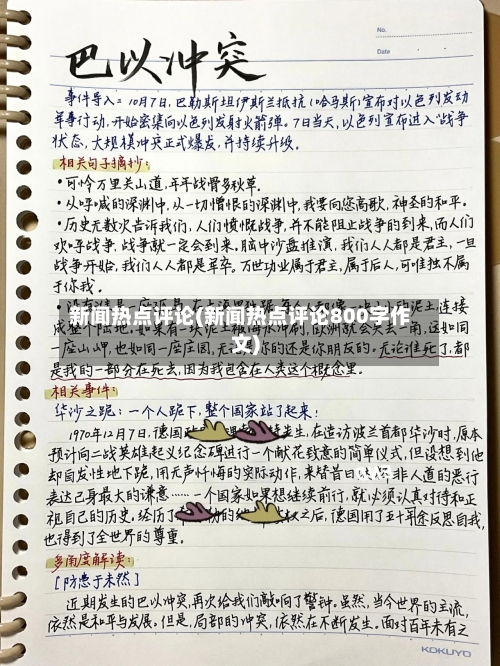 No.
Date
巴以冲突
事件导入：10月7日，巴勒斯坦伊斯兰抵抗(哈马斯)宣布对以色列发动
军事行动，开始密集向以色列发射火箭弹。7日当天，以色列宣布进入"战争
状态，大规模冲突正式爆发，并持续升级。
相关句子摘抄：
·可怜万里关山道，年年战骨多秋草。
·从呜咸的深渊中，从一切憎恨的深渊中，我要向您高歌，神圣的和平。
·历史无数次告诉我们，人们愤慨战争，并不能阻止战争的到来，而人们
欢呼战争，战争就一定会到来，脑中沙盘推演，我们人人都是君主，一旦
战争开始，我们人人都是军卒。万世功业属于君主，属于后人，可唯独不属
于你我。
新闻热点评论(新闻热点评论800字作
文)
连接
成整个陆地，如果有一块泥土被海水冲刷，欧洲就会失去一角，这如同
一座山岬，也如同一座庄园，无论是你的还是你朋友的。无论谁死了，都
是我的一部分在死去，因为我包含在人类这个概念里。
相关事件：
华沙之跪：一个人跪下，整个国家站了起来！
1970年12月7日，德国 先生，在造访波兰首都华沙时，原本
预计向二战英雄起义纪念碑进行一个献花致意的简单仪式，但没想到他
却自发性地下跪，用无声忏悔的实际动作，来替昔日 非人道的恶行
表达己身最大的谦意……一个国家如果想继续前行，就必须认真对待和正
视自己的历史。经历了 之后，德国用了五十年余反思自我，
也得到了全世界的尊重。
多角度解读：
[防患于未然]
近期发生的巴以冲突，再次给我们敲响了警钟。虽然，当今世界的主流，
依然是和平与发展。但是，局部的冲突，依然在不断发生。面对百年未有之
KOKUYO